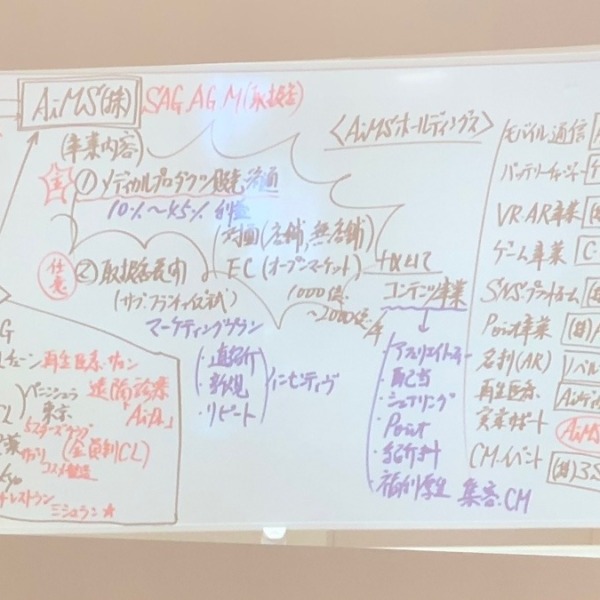 AiMS(株)
SAG.AG.M(取扱店)
(事業内容)
主 ① メディカルプロダクツ販売 流通
10%〜45% 利益
任意 ② 取扱店展開
(サブフランチャイズ式)
対面(店舗, 無店舗)
EC(オープンマーケット)
1000億
〜2000億/年
マーケティングプラン
・直紹介
・新規
・リピート
インセンティヴ
<AiMSホールディングス>
コンテンツ事業
・アフィリエイト
・配当
・シェアリング
・Point
・紹介料
・福利厚生
集客・CM
モバイル通信
バッテリーチャージャー
VR・AR事業
ゲーム事業 C
SNSプラットホーム (株)
Point事業 (株)
名刺(AR) ノベル
再生医療
実業サポート AiMS
CM・イベント (株)3S
G
チェーン 再生医療・サロン
ペニンシュラ
東京
遠隔診療
「AiDr」
CL)
(会員制CL)
コスメ製造
レストラン
ミシュラン★